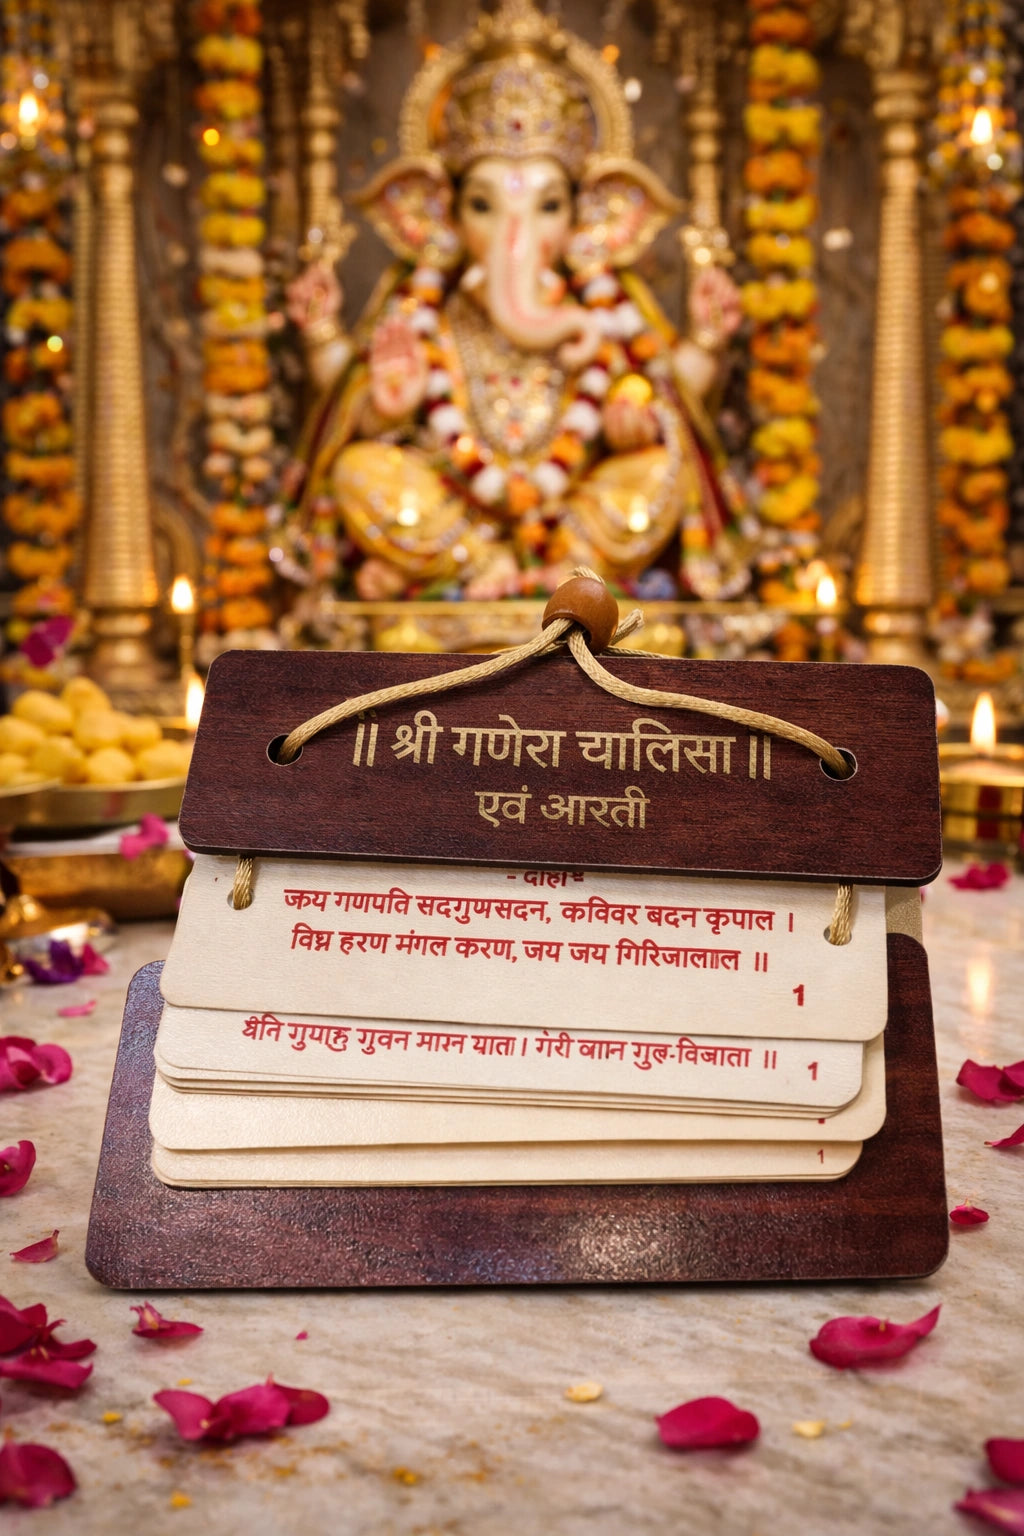 ॥ श्री गणेरा चालिसा ॥
एवं आरती
- दोहा -
जय गणपति सदगुणसदन, कविवर बदन कृपाल ।
विघ्न हरण मंगल करण, जय जय गिरिजालाल ॥
1
मारन याता । गंरी ॥
1
1